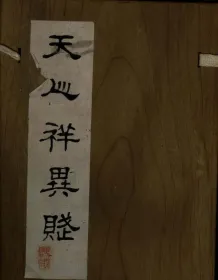 天祥異賦